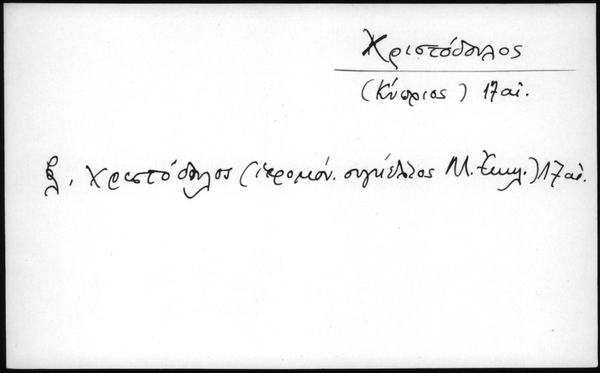 Χριστόδουλος
(Κύπριος) 17 αἰ.
βλ. Χριστόδουλος (ἱερομόν. συγκελλος Μ. Ἐκκλ.) 17 αἰ.